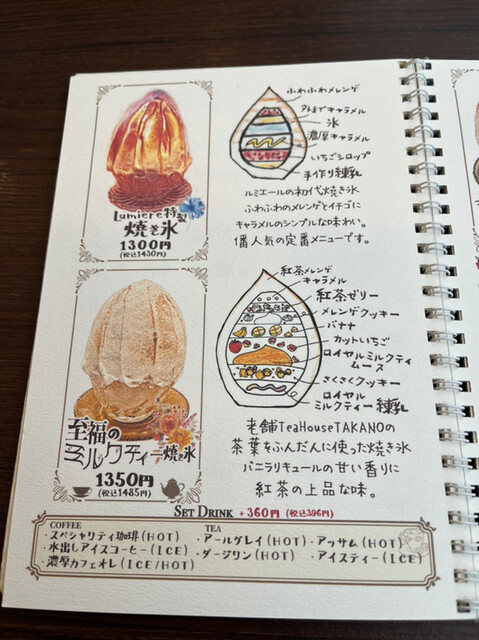 ふわふわメレンゲ
外までキャラメル
氷
濃厚キャラメル
いちごシロップ
手作り練乳
Lumiere特製
焼き氷
1300円
(税込1430円)
ルミエールの初代焼き氷
ふわふわのメレンゲとイチゴに
キャラメルのシンプルな味わい。
1番人気の定番メニューです。
紅茶メレンゲ
キャラメル
紅茶ゼリー
メレンゲクッキー
バナナ
カットいちご
ロイヤルミルクティ
ムース
さくさくクッキー
ロイヤル
ミルクティー練乳
至福の
ミルクティー焼き氷
1350円
(税込1485円)
老舗TeaHouseTAKANOの
茶葉をふんだんに使った焼き氷
バニラリキュールの甘い香りに
紅茶の上品な味。
SET DRINK +360円 (税込396円)
COFFEE
・スペシャリティ珈琲(HOT)
・水出しアイスコーヒー(ICE)
・濃厚カフェオレ(ICE/HOT)
TEA
・アールグレイ(HOT)・アッサム(HOT)
・ダージリン(HOT) ・アイスティー(ICE)